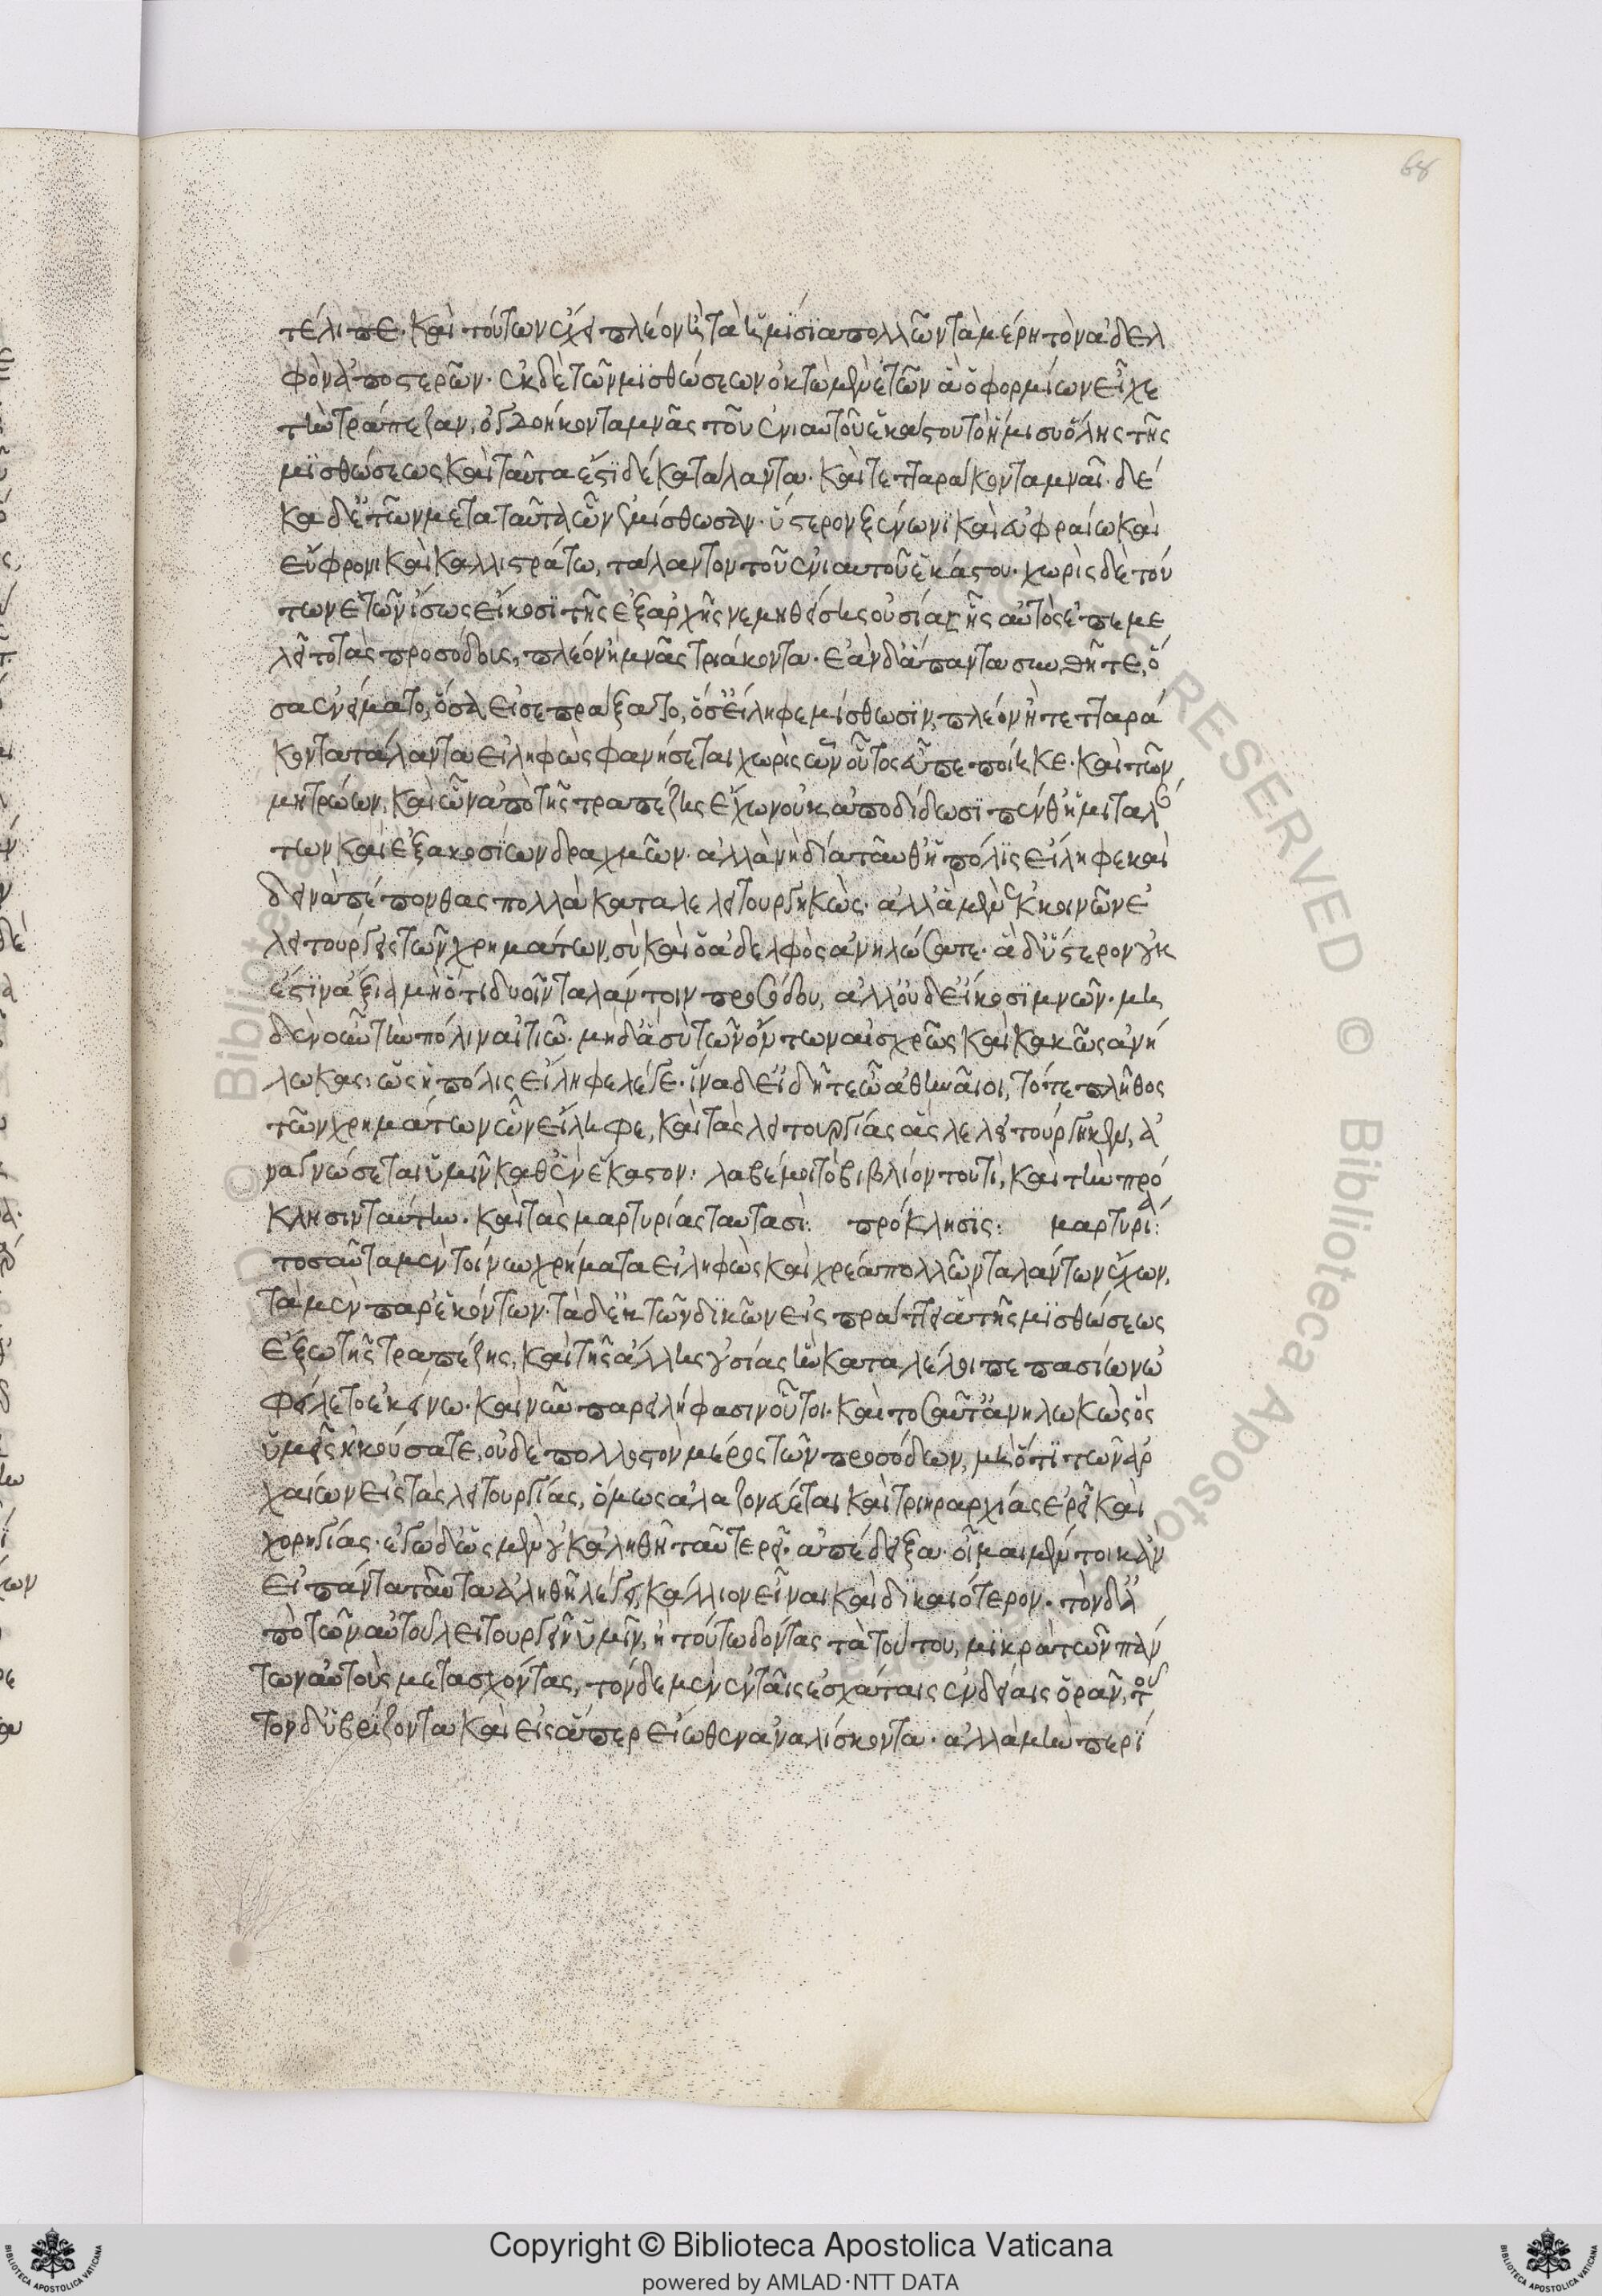 68
τέλιπε· καὶ τούτων ἔχει πλέον ἢ τὰ ἡμίσϊα πολλῶν τὰ μέρη τὸν ἀδελ
φὸν ἀποστερῶν· ἐκ δὲ τῶν μϊσθώσεων ὀκτὼ μὲν ἐτῶν ἃ ὁ φορμίων εἶχε
τὴν τράπεζαν, ὀγδοήκοντα μνᾶς τοῦ ἐνιαυτοῦ ἑκάστου τὸ ἥμισυ ὅλης τῆς
μϊσθώσεως καὶ ταῦτα ἐστὶ δέκα τάλαντα· καὶ τετταράκοντα μναῖ· δέ
κα δὲ τῶν μετὰ ταῦτα ὧν ἐμίσθωσαν· ὕστερον ξένωνϊ καὶ εὐφραίω καὶ
εὔφρονι καὶ καλλιστράτω, τάλαντον τοῦ ἐνιαυτοῦ ἑκάστου· χωρὶς δὲ τού
των ἐτῶν ἴσως εἴκοσϊ τῆς ἐξαρχῆς νεμηθείσης οὐσίας ἧς αὐτὸς ἐπεμε
λεῖτο τὰς προσόδους, πλέον ἢ μνᾶς τριάκοντα· ἐὰν δ' ἅπαντα συνθῆτε, ὅ
σα ἐνείματο, ὅσα εἰσεπράξατο, ὅσ' εἴληφε μίσθωσϊν, πλέον ἢ τετταρά
κοντα τάλαντα εἰληφὼς φανήσεται χωρὶς ὧν οὗτος εὖ πεποίηκε· καὶ τῶν
μητρώων, καὶ ὧν ἀπὸ τῆς τραπέζης ἔχων οὐκ ἀποδίδωσϊ πένθ' ἡμιταλ
των καὶ ἑξακοσϊων δραχμῶν· ἀλλὰ νὴ δία ταῦθ' ἡ πόλϊς εἴληφε καὶ
δεινὰ πέπονθας πολλὰ καταλελειτουργηκώς· ἀλλ' ἃ μὲν ἐκ κοινῶν ἐ
λειτούργεις τῶν χρημάτων, σὺ καὶ ὁ ἀδελφὸς ἀνηλώσατε· ἃ δ' ὕστερον οὐκ
ἐστϊν ἄξια μὴ ὅτι δυοῖν ταλάντοιν προσόδου, ἀλλ' οὐδ' εἴκοσϊ μνῶν· μη
δὲν οὖν τὴν πόλιν αἰτιῶ· μηδ' ἃ σὺ τῶν ὄντων αἰσχρῶς καὶ κακῶς ἀνή
λωκας, ὡς ἡ πόλις εἴληφε λέγε· ἵνα δ' εἰδῆτε ὦ ἀθηναῖοι, τό τε πλῆθος
τῶν χρημάτων ὧν εἴληφε, καὶ τὰς λειτουργίας ἃς λελειτούργηκεν, ἀ
ναγνώσεται ὑμῖν καθ' ἓν ἕκαστον: λαβέ μοι τὸ βιβλίον τουτὶ, καὶ τὴν πρό
κλησιν ταύτην· καὶ τὰς μαρτυρίας ταυτασὶ: πρόκλησϊς: μαρτυρίαι:
τοσαῦτα μὲν τοίνυν χρήματα εἰληφὼς καὶ χρέα πολλῶν ταλάντων ἔχων,
τὰ μὲν παρ' ἑκόντων· τὰ δ' ἐκ τῶν δϊκῶν εἰσπράττει ἃ τῆς μϊσθώσεως
ἔξω τῆς τραπέζης, καὶ τῆς ἄλλης οὐσίας ἣν καταλέλοιπε πασίων ὠ
φείλετο ἐκείνω· καὶ νῦν παρειλήφασιν οὗτοι· καὶ τοσαῦτ' ἀνηλωκὼς ὅσ
ὑμεῖς ἠκούσατε, οὐδὲ πολλοστὸν μέρος τῶν προσόδων, μὴ ὅτϊ τῶν ἀρ
χαίων εἰς τὰς λειτουργίας, ὅμως ἀλαζονεύεται καὶ τριηραρχίας ἐρεῖ καὶ
χορηγίας· ἐγὼ δ' ὡς μὲν οὐκ ἀληθῆ ταῦτ' ἐρεῖ· ἀπέδειξα· οἶμαι μέν τοι κἂν
εἰ πάντα ταῦτα ἀληθῆ λέγει, κάλλιον εἶναι καὶ δϊκαιότερον· τόνδ' ἀ
πὸ τῶν αὑτοῦ λειτουργεῖν ὑμῖν, ἢ τούτω δόντας τὰ τούτου, μϊκρὰ τῶν πάν
των αὐτοὺς μετασχόντας, τόνδε μὲν ἐν ταῖς ἐσχάταις ἐνδείαις ὁρᾶν, τοῦ
τον δ' ὑβρίζοντα καὶ εἰς ἅπερ εἴωθεν ἀναλίσκοντα· ἀλλὰ μὴν περϊ
Copyright © Biblioteca Apostolica Vaticana
powered by AMLAD·NTT DATA